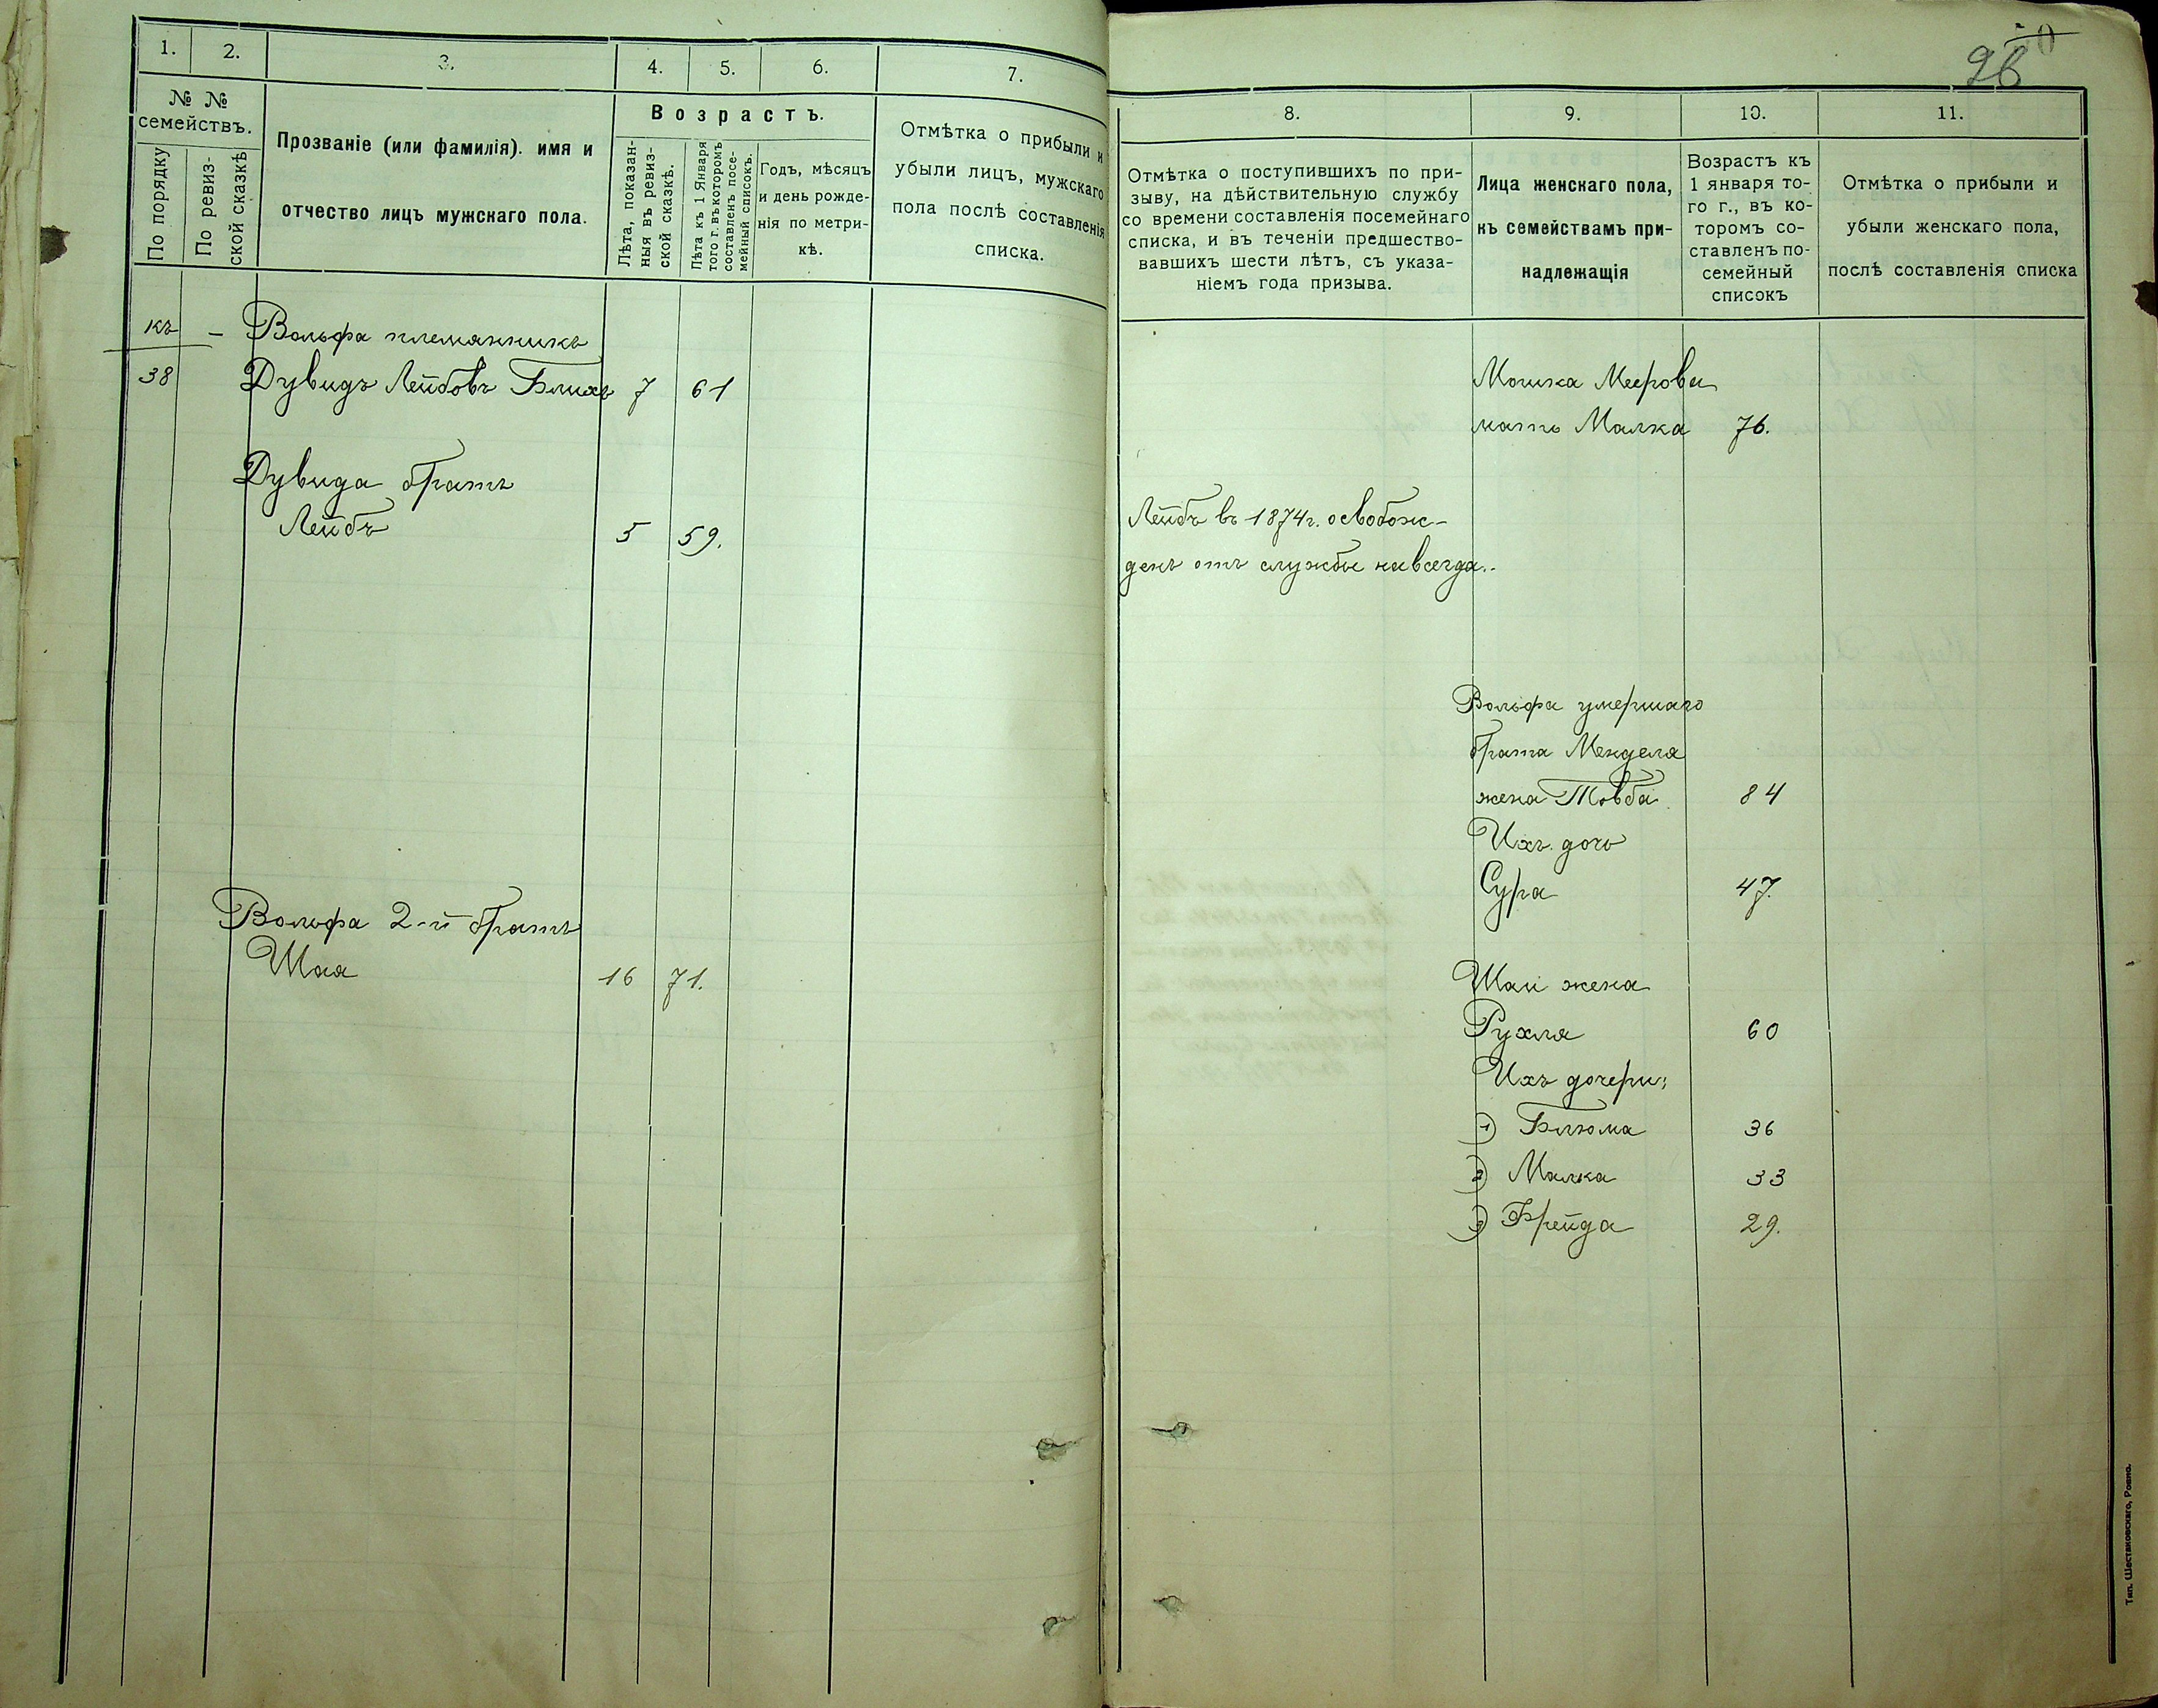 1.
2.
3.
4.
5.
6.
7.
№ №
семействъ.
По порядку
По ревиз-
ской сказкѣ
Прозваніе (или фамилія). имя и
отчество лицъ мужскаго пола.
Возрастъ.
Лѣта, показан-
ныя въ ревиз-
ской сказкѣ.
Лѣта къ 1 Января
того г. въ которомъ
составленъ посе-
мейный списокъ.
Годъ, мѣсяцъ
и день рожде-
нія по метри-
кѣ.
Отмѣтка о прибыли и
убыли лицъ, мужскаго
пола послѣ составленія
списка.
къ – Вольфа племянникъ
38 Дувидъ Лейбовъ Блихъ 7 61
Дувида братъ
Лейбъ 5 59.
Вольфа 2-й братъ
Шая 16 71.
26
8.
9.
10.
11.
Отмѣтка о поступившихъ по при-
зыву, на дѣйствительную службу
со времени составленія посемейнаго
списка, и въ теченіи предшество-
вавшихъ шести лѣтъ, съ указа-
ніемъ года призыва.
Лица женскаго пола,
къ семействамъ при-
надлежащія
Возрастъ къ
1 января то-
го г., въ ко-
торомъ со-
ставленъ по-
семейный
списокъ
Отмѣтка о прибыли и
убыли женскаго пола,
послѣ составленія списка
Мошка Меерова
мать Малка 76.
Лейбъ въ 1874 г. освобож-
денъ отъ службы навсегда.
Вольфа умершаго
брата Менделя
жена Товба 84
Ихъ дочь
Сура 47.
Шаи жена
Рухля 60
Ихъ дочери:
1) Блюма 36
2) Малка 33
3) Брейда 29.
Тип. Шестаковскаго, Ровно.